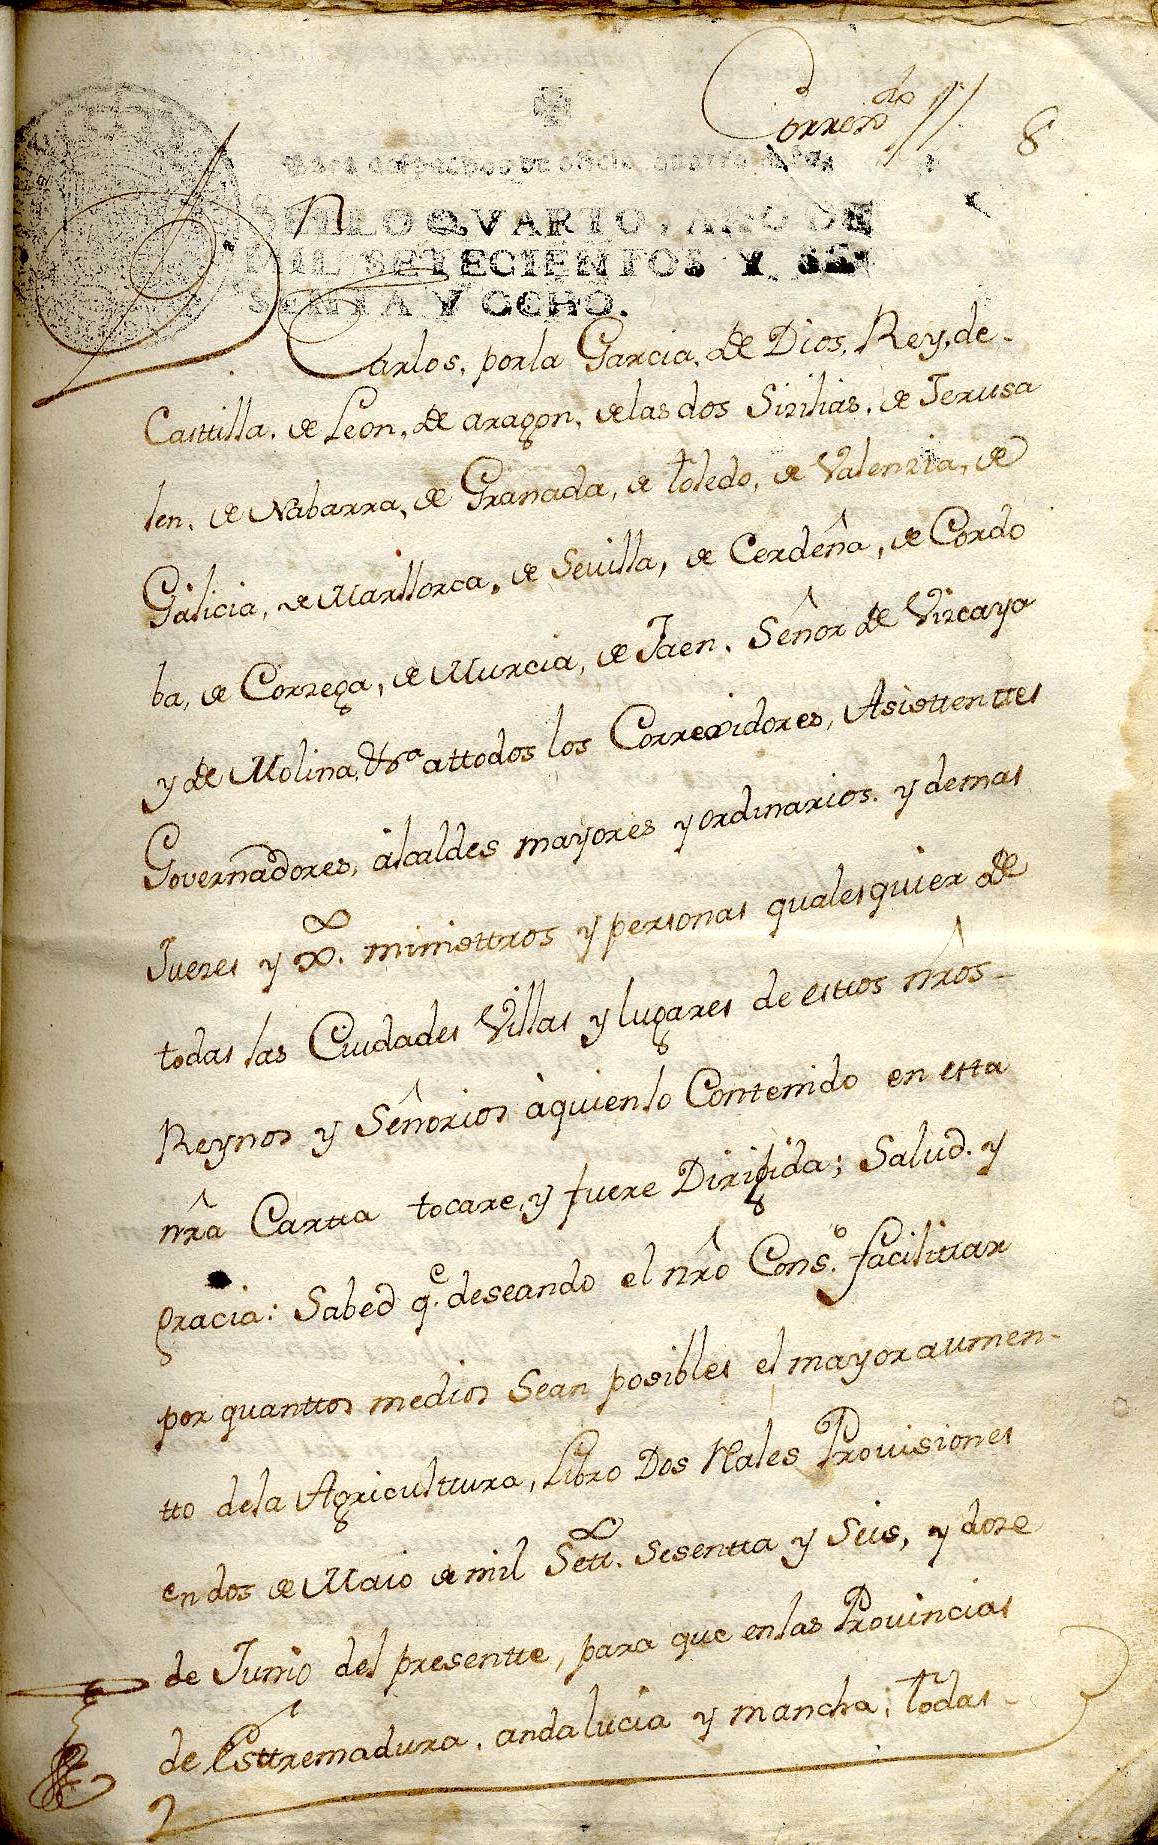 Corregdo //
8
Para despachos de oficio quatro mrs.
SELLO QVARTO, AÑO DE
MIL SETECIENTOS Y SE
SENTA Y OCHO.
Carlos, por la Garcia, de Dios, Rey, de-
Casttilla, de Leon, de aragon, de las dos Sizilias, de Jerusa
len, de Nabarra, de Granada, de toledo, de Valenzia, de
Galicia, de Marllorca, de Sevilla, de Cerdeña, de Cordo
ba, de Correga, de Murcia, de Jaen, Señor de Vizcaya
y de Molina, &ª attodos los Correxidores, Asisttenttes
Governadores, alcaldes mayores y ordinarios. y demas
Juezes y ministtros y personas qualesquier de
todas las Ciudades Villas y lugares de esttos nr̂os-
Reynos y Señorios à quien lo Contenido en estta
nr̂a Cartta tocare, y fuere Dirigida; Salud. y
gracia: Sabed q.e deseando el nr̂o Cons.o facilittar
por quanttos medios Sean posibles el mayor aumen-
tto dela Agriculttura, Libro Dos Rales Provisiones
en dos de Maio de mil Sett.os Sesentta y Seis, y doze
de Junio del presentte, para que en las Provincias
de Esttremadura, andalucia y mancha; todas-